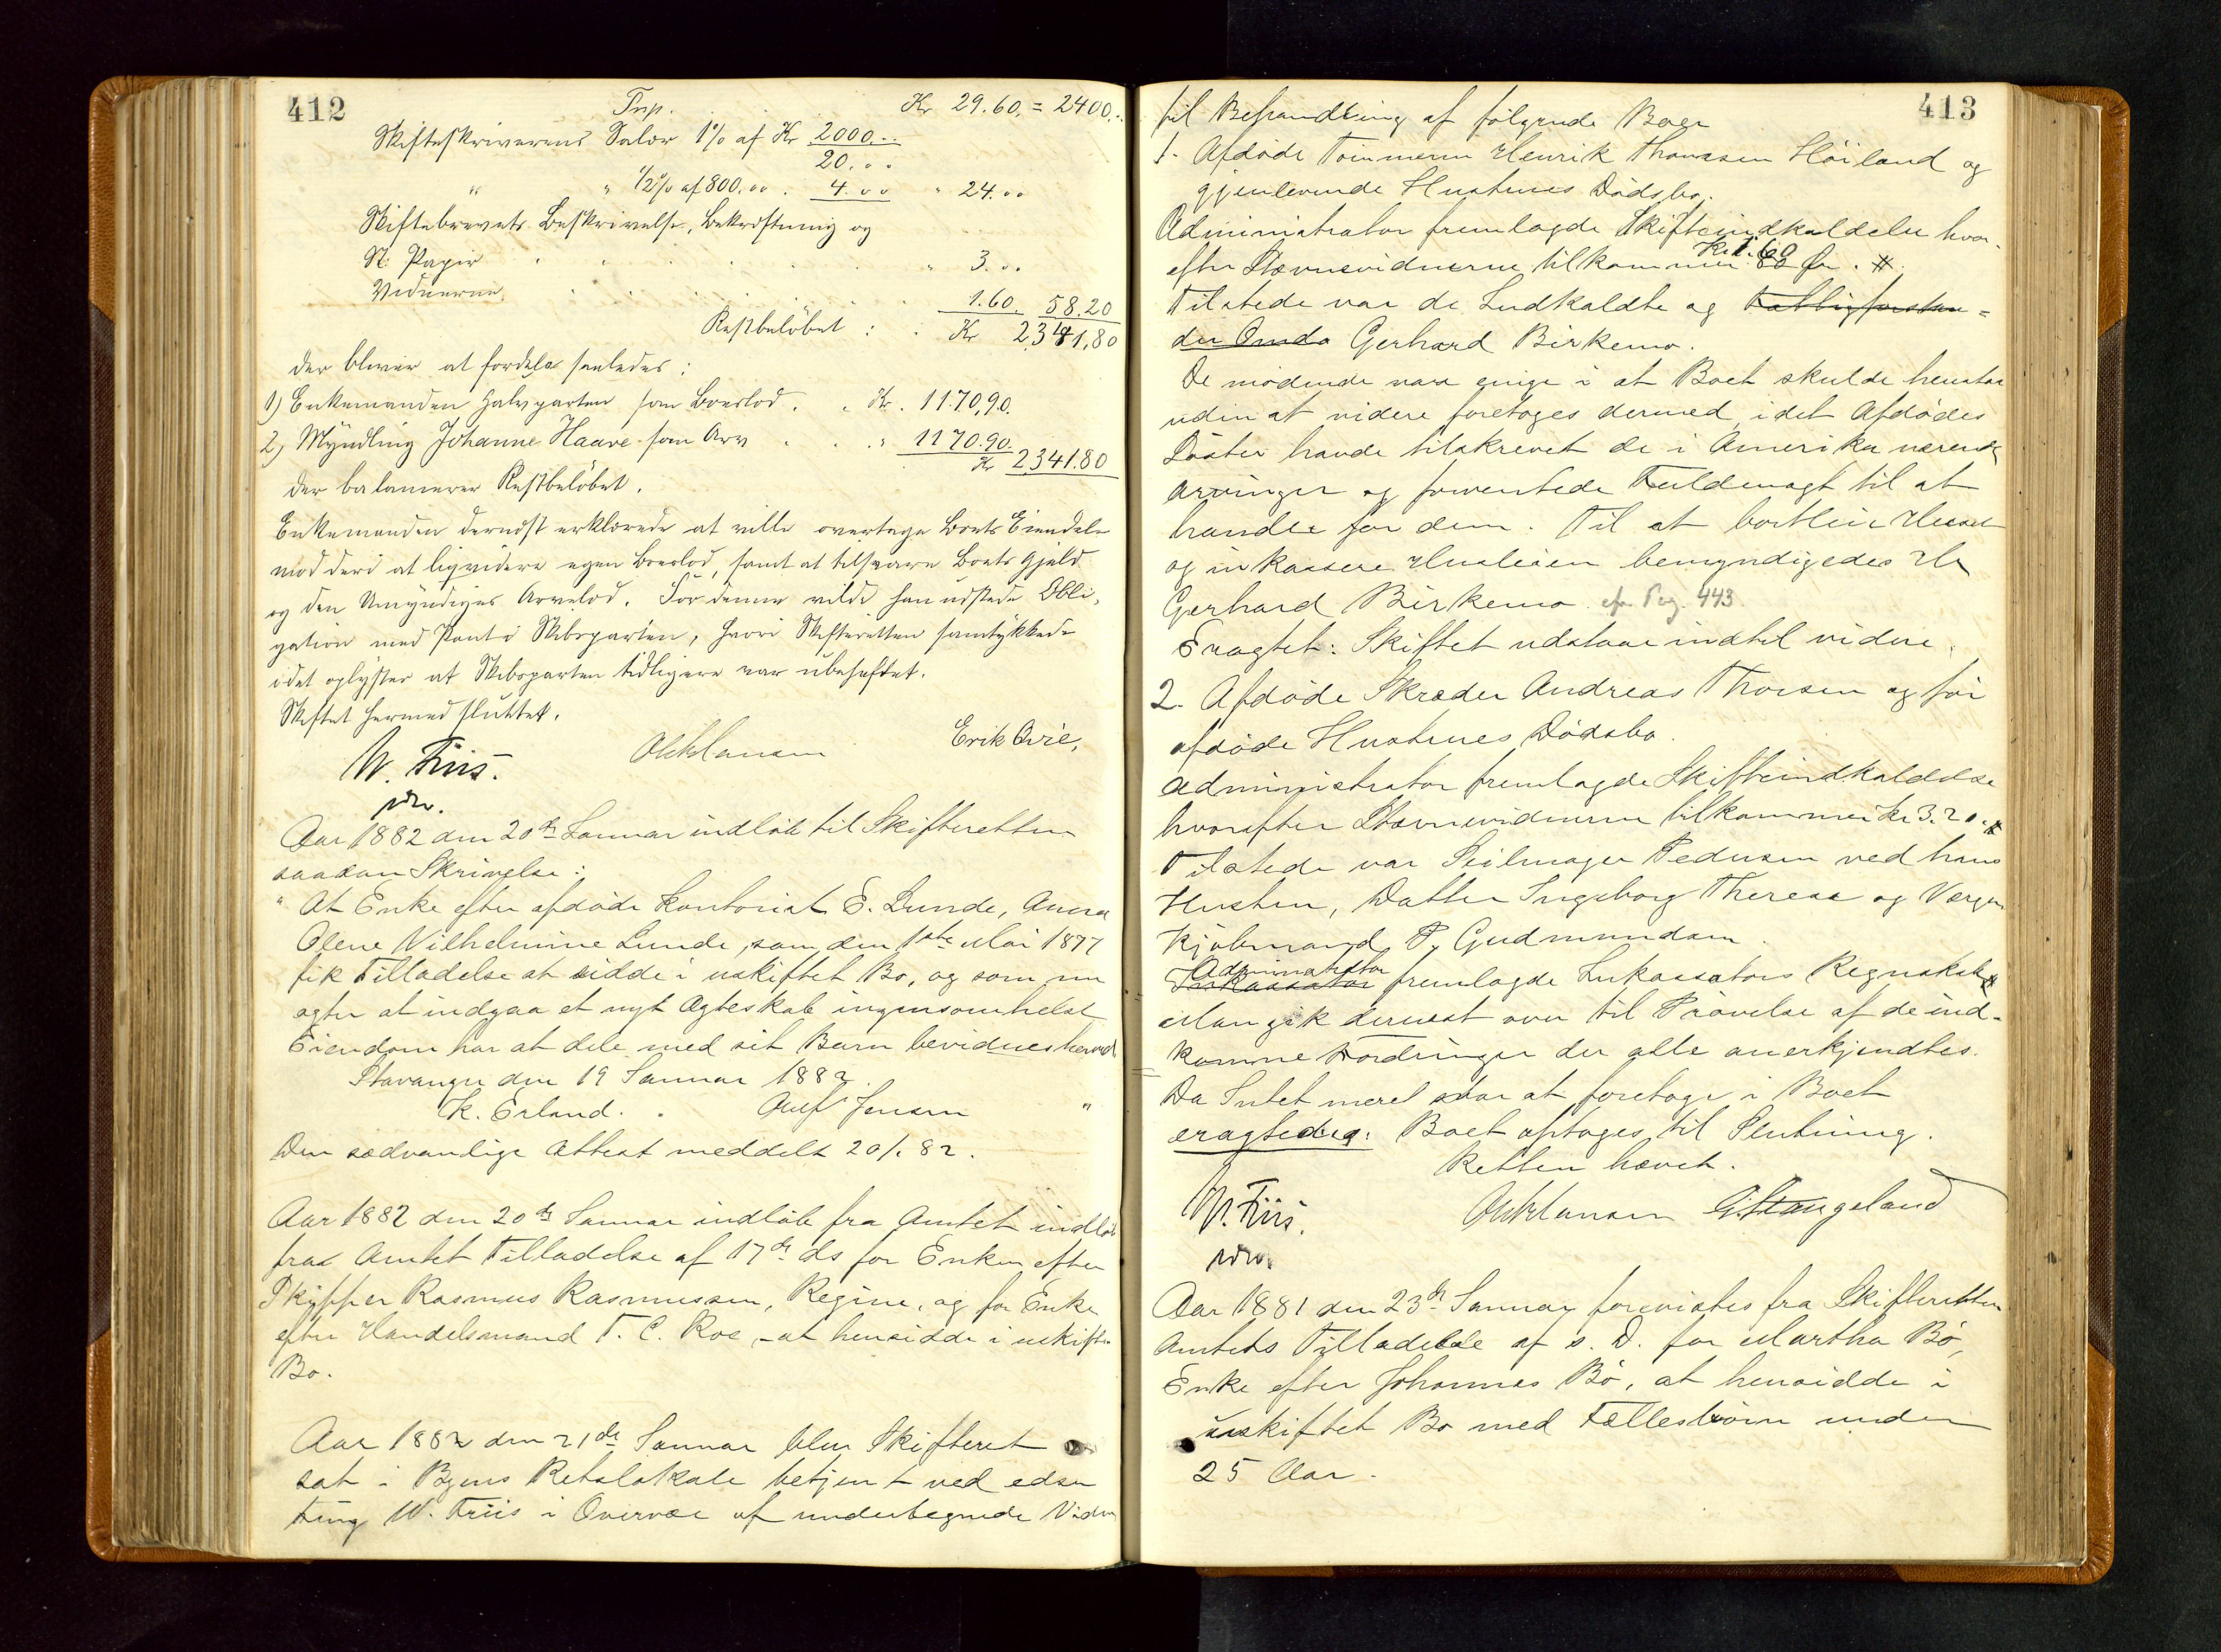 412
Trsp. Kr 29.60. = 2400.
Skifteskriverens Salær 1% af Kr 2000...
20...
" " 1/2% af 800.00 . 4.00 " 24.00
Skiftebrevets Beskrivelse, Bekræftning og
St. Papir " 3...
Vidnerne 1.60. 58.20
Restbeløbet : Kr 2341,80
der bliver at fordele saaledes:
1) Enkemanden Halvparten som Boeslod . . Kr. 1170,90.
2) Myndling Johanne Haave som Arv . . . " 1170.90.
Kr 2341.80
der balancerer Restbeløbet.
Enkemanden dernæst erklærede at ville overtage Boets Eiendele
mod deri at liqvidere egen Boeslod, samt at tilsvare Boets Gjæld
og den Umyndiges Arvelod. For denne vilde han udstede Obli-
gation med Pant i Skibsparten, hvori Skifteretten samtykkede
idet oplystes at Skibsparten tidligere var ubeheftet.
Skiftet hermed sluttet.
W. Friis. O Hansen Erik Qvie,
Aar 1882 den 20de Januar indløb til Skifteretten
saadan Skrivelse:
" At Enke efter afdøde Kontorist E. Lunde, Anna
Olene Vilhelmine Lunde, som den 1ste Mai 1877
fik Tilladelse at sidde i uskiftet Bo, og som nu
agter at indgaa et nyt Ægteskab ingensomhelst
Eiendom har at dele med sit Barn bevidnes herved
Stavanger den 19 Januar 1882.
K. Erland. . Oluf Jensen "
Den sædvanlige Attest meddelt 20/1 82.
Aar 1882 den 20de Januar indløb fra Amtet indløb
fra Amtet Tilladelse af 17de ds for Enken efter
Skipper Rasmus Rasmussen, Regine, og for Enke
efter Handelsmand T. C. Roe, at hensidde i uskiftet
Bo.
Aar 1882 den 21de Januar blev Skifteret
sat i Byens Retslokale betjent ved edsv
Fung W. Friis i Overvær af undertegnede Vidner
413
til Behandling af følgende Boer
1. Afdøde Tømmerm Henrik Thomassen Høiland og
gjenlevende Hustrues Dødsbo.
Administrator fremlagde Skifteindkaldelse hvor-
efter Stævnevidnerne tilkommer Kr 1.60 80 Øre. #
Tilstede var de Indkaldte og Fattigforstan=
der Omdo Gerhard Birkemo.
De mødende vare enige i at Boet skulde henstaa
uden at videre foretoges dermed, idet Afdødes
Søster havde tilskrevet de i Amerika værende
Arvinger og forventede Fuldmagt til at
handle for dem. Til at bortleie Huset
og inkassere Husleien bemyndigedes Hr
Gerhard Birkemo. cfr Pag. 443
Eragtet: Skiftet udstaar indtil videre.
2. Afdøde Skræder Andreas Thorsen og før
afdøde Hustrues Dødsbo.
Administrator fremlagde Skifteindkaldelse
hvorefter Stævnevidnerne tilkommer Kr 3.20. #
Tilstede var Seilmager Pedersen ved hans
Hustru, Datter Ingeborg Therese og Værgen
Kjøbmand P. Gudmundsen.
Administrator
Inkassator fremlagde Inkassators Regnskab #
Man gik dernæst over til Prøvelse af de ind-
komne Fordringer der alle anerkjendtes.
Da Intet mere var at foretage i Boet
eragtedes: Boet optages til Slutning.
Retten hævet.
W. Friis. O Hansen G. Stangeland
Aar 1881 den 23de Januar forevistes fra Skifteretten
Amtets Tilladelse af s. D. for Martha Bø,
Enke efter Johannes Bø, at hensidde i
uskiftet Bo med Fællesbørn under
25 Aar.